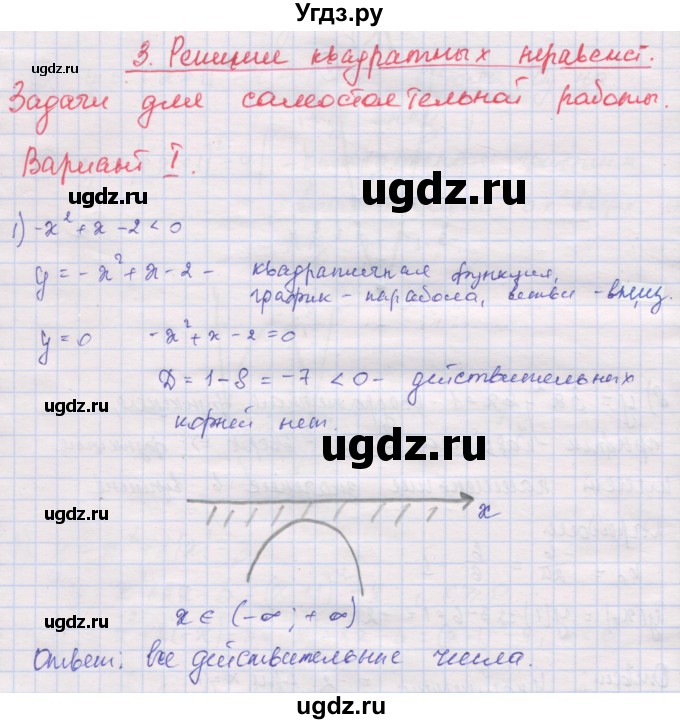 Угдз.ру
3. Решение квадратных неравенст.
Задачи для самостоятельной работы.
Вариант I.
1) -x² + x - 2 < 0
y = -x² + x - 2 - квадратичная функция,
график - парабола, ветви - вниз.
y = 0 -x² + x - 2 = 0
D = 1 - 8 = -7 < 0 - действительных
корней нет.
x
x ∈ (-∞; +∞)
Ответ: все действительные числа.
ugdz.ru
ugdz.ru
ugdz.ru
ugdz.ru
ugdz.ru
ugdz.ru
ugdz.ru
ugdz.ru
ugdz.ru
ugdz.ru